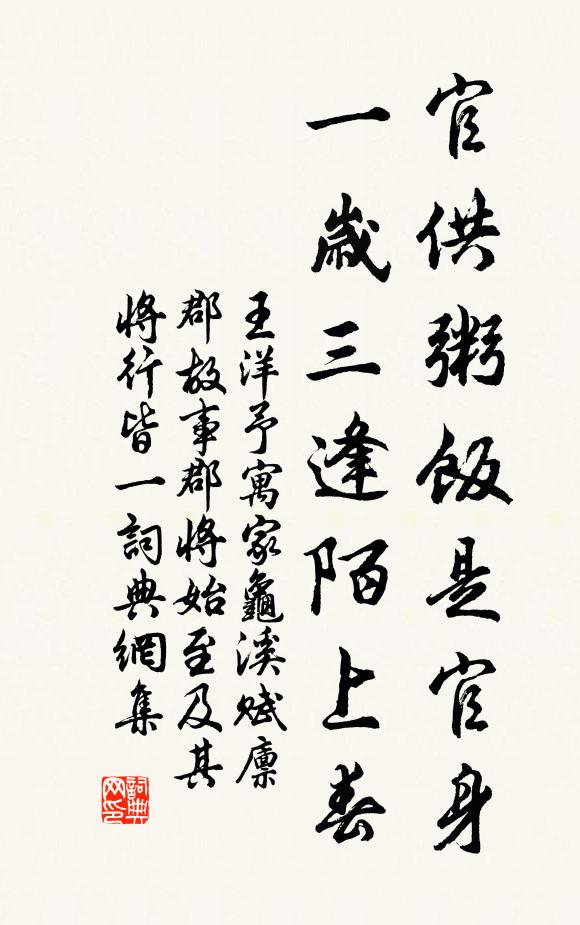 官供粥飯是官身
一歲三逢陌上春
王洋予寓家龜溪賦廪
郡故事郡將始至及其
將行皆一詞典網集
詞典网印